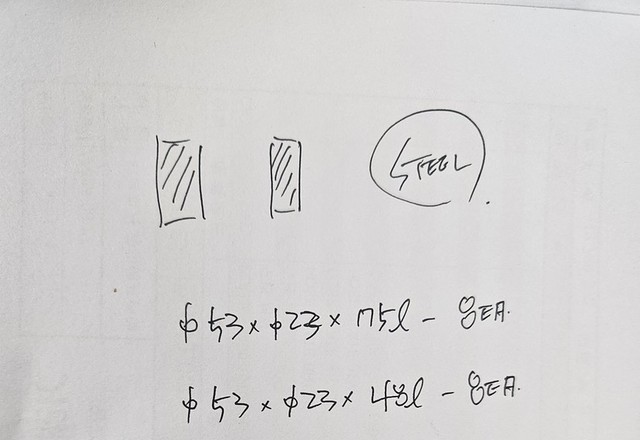 STEEL
φ53×φ23×75l - 8EA.
φ53×φ23×48l - 8EA.